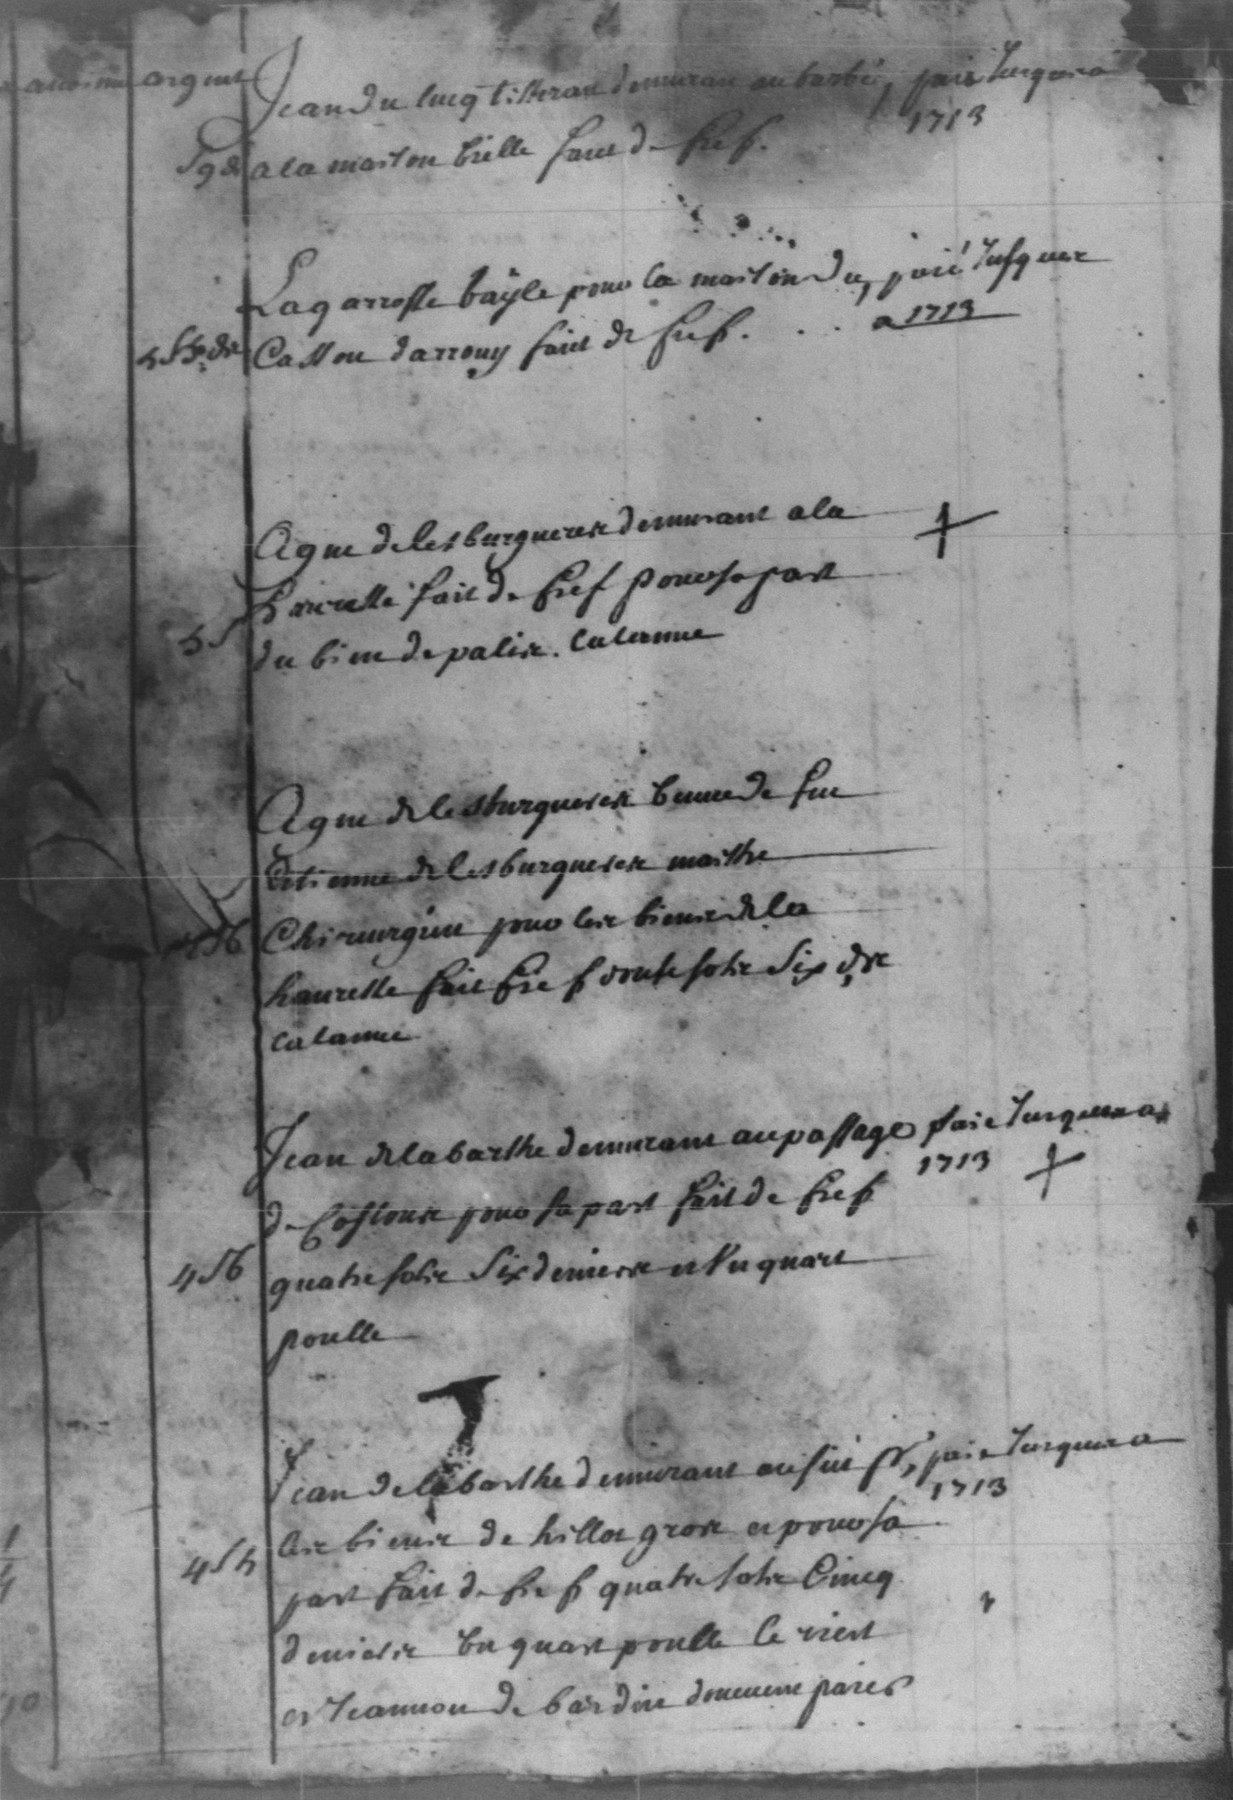 argent
Jean du lucq tisseran demuran au barbé, paié Jusques a
1713
a la maison vielle faut de fief.
Lagarrosse bayle pour la maison du, paié Jusques
Casson darrouy fait de fief. . . . a 1713
Agne de lesburgueres demurant a la
haurette fait de fief pour sa part
5 s
du bien de palis. Calanne
Agne de lesburgueres beuue de feu
Etienne de lesburgueres maistre
Chirurgien pour les biens de la
haurette fait fief douse sols Six drs
Calanne
Jean de labarthe demurant au passage paie Jusques a
1713
de pour sa part fait de fief
4 s 6
quatre sols Six deniers et Vn quart
poulle
Jean de labarthe demurant paie Jusques a
1713
les biens de hillot gros et pour sa
4 s 5
part fait de fief quatre sols Cincq
deniers bn quart poulle le viert
et Jeannon de bardin doiuent paies